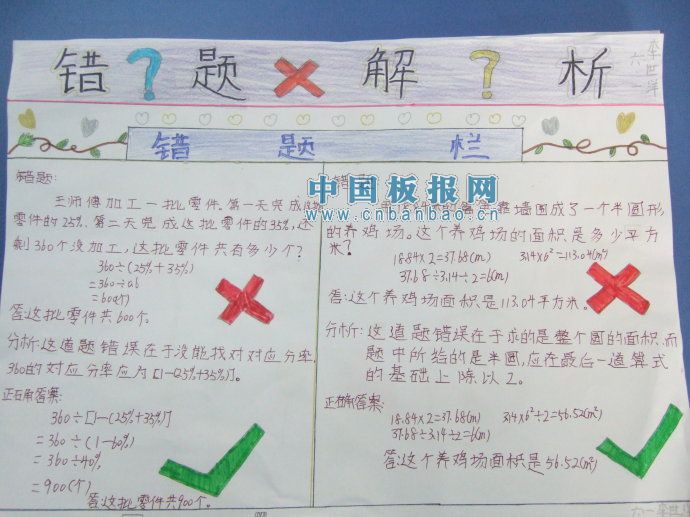 错?题×解?析
六一
李世洋
错题栏
错题:
王师傅加工一批零件,第一天完成这批
零件的25%,第二天完成这批零件的35%,还
剩360个没加工,这批零件共有多少个?
360÷(25%+35%)
=360÷0.6
=600(个)
答:这批零件共600个。
分析:这道题错误在于没能找对对应分率,
360的对应分率应为[1-(25%+35%)]。
正确答案:
360÷[1-(25%+35%)]
=360÷(1-60%)
=360÷40%
=900(个)
答:这批零件共900个。
错题:
靠墙围成了一个半圆形
的养鸡场。这个养鸡场的面积是多少平方
米?
18.84×2=37.68(m) 3.14×6²=113.04(m²)
37.68÷3.14÷2=6(m)
答:这个养鸡场面积是113.04平方米。
分析:这道题错误在于求的是整个圆的面积,而
题中所给的是半圆,应在最后一道算式
的基础上除以2。
正确答案:
18.84×2=37.68(m) 3.14×6²÷2=56.52(m²)
37.68÷3.14÷2=6(m)
答:这个养鸡场面积是56.52(m²)
中国板报网
www.cnbanbao.cn